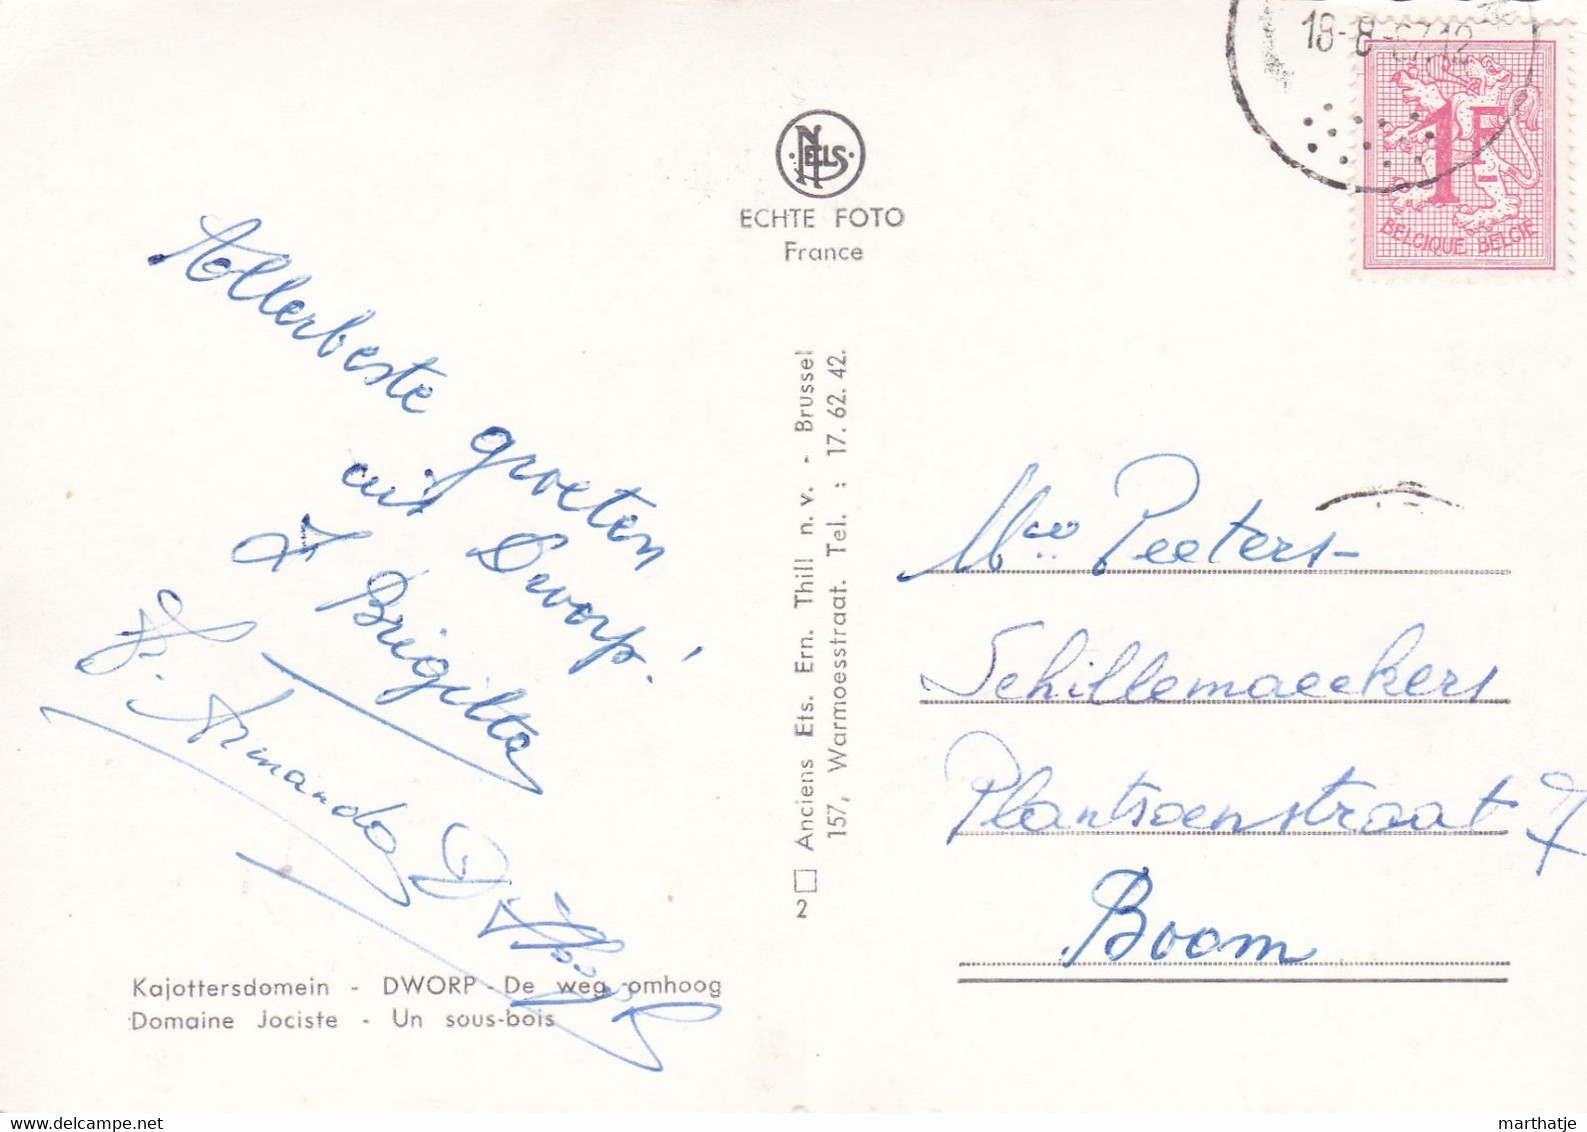 18-8-67.12
1F
BELGIQUE BELGIË
NELS
ECHTE FOTO
France
Allerbeste groeten
uit Dworp!
Brigitta
Armando D
Anciens Ets. Ern. Thill n. v. - Brussel
157, Warmoesstraat. Tel. : 17. 62. 42.
2
Peeters-
Schillemaeckers
Plantsoenstraat 7
Boom
Kajottersdomein - DWORP - De weg omhoog
Domaine Jociste - Un sous-bois
delcampe.net
marthatje